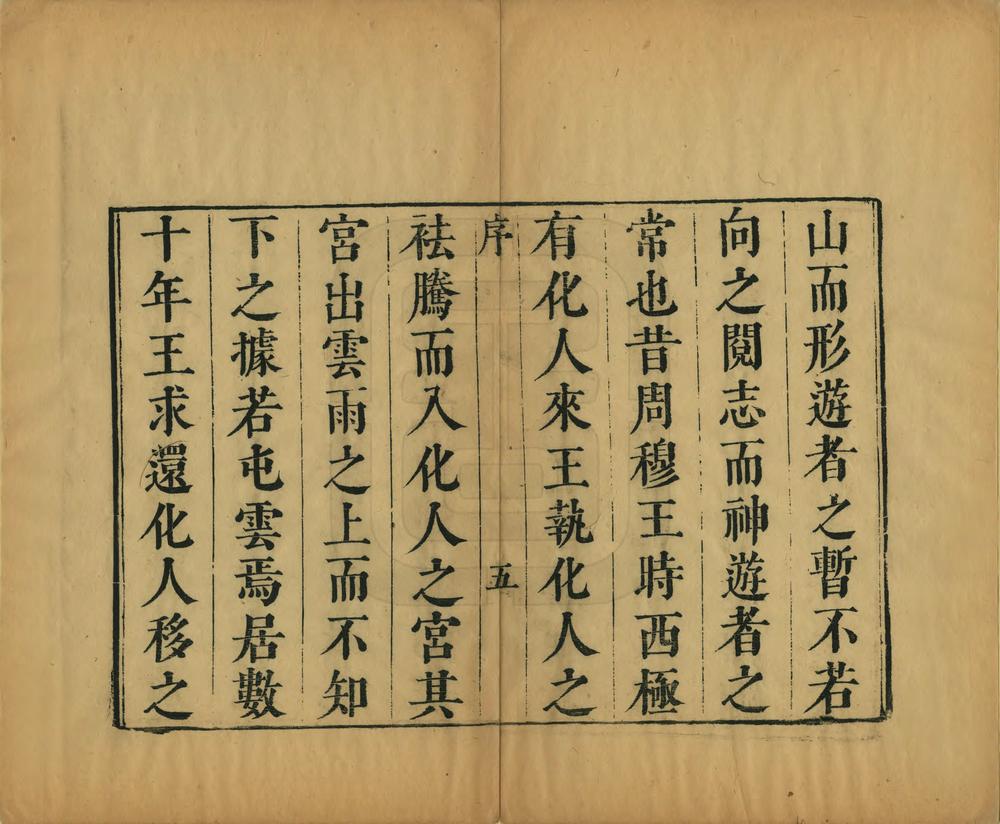 山而形遊者之暫不若
向之閱志而神遊者之
常也昔周穆王時西極
有化人來王執化人之
序 五
袪騰而入化人之宮其
宮出雲雨之上而不知
下之據若屯雲焉居數
十年王求還化人移之